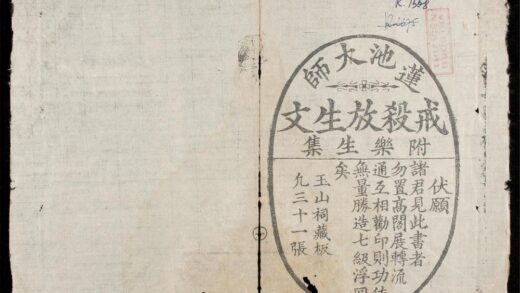 蓮池大師
戒殺放生文
附樂生集
伏願
諸君見此書者
勿置高閣展轉流
通互相勸印則功
無量勝造七級浮
矣
玉山祠藏板
凢三十一張